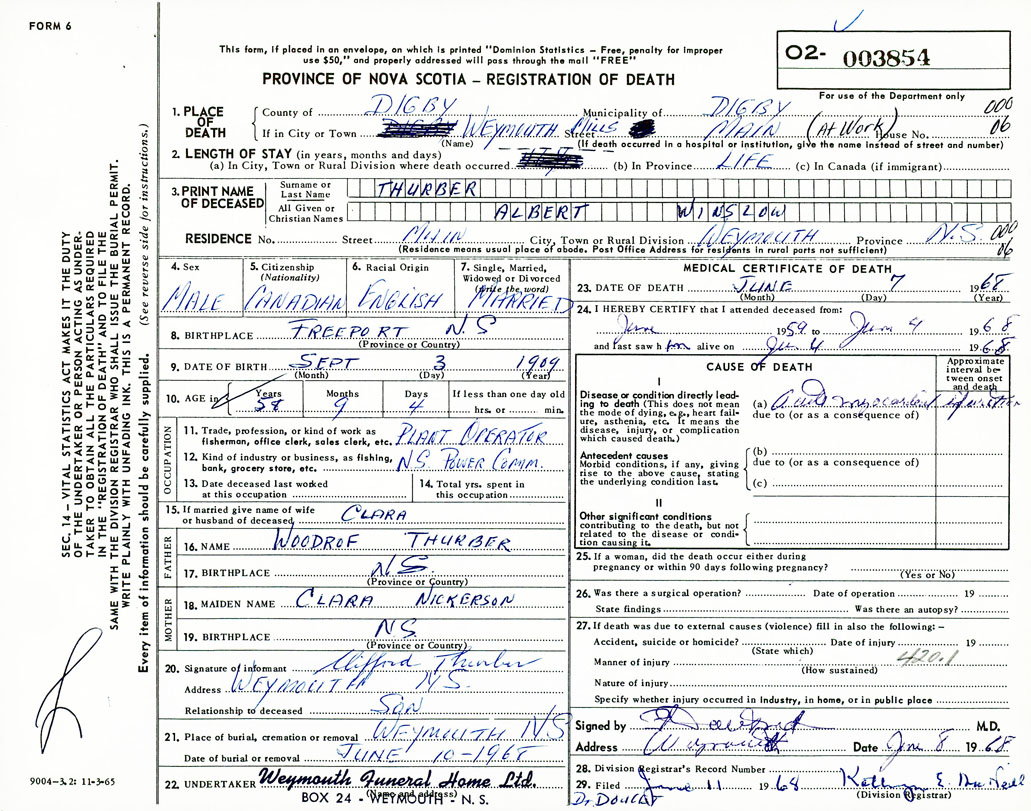 FORM 6
This form, if placed in an envelope, on which is printed "Dominion Statistics – Free, penalty for improper
use $50," and properly addressed will pass through the mail "FREE"
PROVINCE OF NOVA SCOTIA – REGISTRATION OF DEATH
O2- 003854
For use of the Department only
000
06
1. PLACE OF DEATH
County of DIGBY Municipality of DIGBY
If in City or Town WEYMOUTH MILLS Street MAIN (AT WORK) House No.
(Name) (If death occurred in a hospital or institution, give the name instead of street and number)
2. LENGTH OF STAY (in years, months and days)
(a) In City, Town or Rural Division where death occurred (b) In Province LIFE (c) In Canada (if immigrant)
3. PRINT NAME OF DECEASED
Surname or Last Name THURBER
All Given or Christian Names ALBERT WINSLOW
RESIDENCE No. Street MAIN City, Town or Rural Division WEYMOUTH Province N.S. 000
06
(Residence means usual place of abode. Post Office Address for residents in rural parts not sufficient)
4. Sex MALE
5. Citizenship (Nationality) CANADIAN
6. Racial Origin ENGLISH
7. Single, Married, Widowed or Divorced (write the word) MARRIED
8. BIRTHPLACE FREEPORT N.S
(Province or Country)
9. DATE OF BIRTH SEPT 3 1909
(Month) (Day) (Year)
10. AGE in Years 58 Months 9 Days 4 If less than one day old
hrs. or min.
OCCUPATION
11. Trade, profession, or kind of work as fisherman, office clerk, sales clerk, etc. PLANT OPERATOR
12. Kind of industry or business, as fishing, bank, grocery store, etc. N.S. POWER COMM.
13. Date deceased last worked at this occupation
14. Total yrs. spent in this occupation
15. If married give name of wife or husband of deceased CLARA
FATHER
16. NAME WOODROF THURBER
17. BIRTHPLACE N.S.
(Province or Country)
MOTHER
18. MAIDEN NAME CLARA NICKERSON
19. BIRTHPLACE N.S.
(Province or Country)
20. Signature of informant Clifford Thurber
Address WEYMOUTH N.S.
Relationship to deceased SON
21. Place of burial, cremation or removal WEYMOUTH N/S
Date of burial or removal JUNE 10-1968
22. UNDERTAKER Weymouth Funeral Home Ltd.
(Name and address)
BOX 24 - WEYMOUTH - N. S.
MEDICAL CERTIFICATE OF DEATH
23. DATE OF DEATH JUNE 7 1968
(Month) (Day) (Year)
24. I HEREBY CERTIFY that I attended deceased from:
June 1959 to June 4 1968
and last saw him alive on Ju 4 1968
CAUSE OF DEATH
Approximate interval between onset and death
I
Disease or condition directly leading to death (This does not mean the mode of dying, e.g., heart failure, asthenia, etc. It means the disease, injury, or complication which caused death.)
(a) Acute myocardial infarction
due to (or as a consequence of)
Antecedent causes
Morbid conditions, if any, giving rise to the above cause, stating the underlying condition last.
(b)
due to (or as a consequence of)
(c)
II
Other significant conditions
contributing to the death, but not related to the disease or condition causing it.
25. If a woman, did the death occur either during
pregnancy or within 90 days following pregnancy?
(Yes or No)
26. Was there a surgical operation? Date of operation 19
State findings Was there an autopsy?
27. If death was due to external causes (violence) fill in also the following: –
Accident, suicide or homicide? Date of injury 19
(State which)
Manner of injury 420.1
(How sustained)
Nature of injury
Specify whether injury occurred in industry, in home, or in public place
Signed by M.D.
Address Weymouth Date June 8 1968
28. Division Registrar's Record Number
29. Filed June 11 1968
(Division Registrar)
Dr DOUCET
SEC. 14 – VITAL STATISTICS ACT MAKES IT THE DUTY
OF THE UNDERTAKER OR PERSON ACTING AS UNDER-
TAKER TO OBTAIN ALL THE PARTICULARS REQUIRED
IN THE "REGISTRATION OF DEATH" AND TO FILE THE
SAME WITH THE DIVISION REGISTRAR WHO SHALL ISSUE THE BURIAL PERMIT.
WRITE PLAINLY WITH UNFADING INK. THIS IS A PERMANENT RECORD.
Every item of information should be carefully supplied. (See reverse side for instructions.)
9004-3.2: 11-3-65